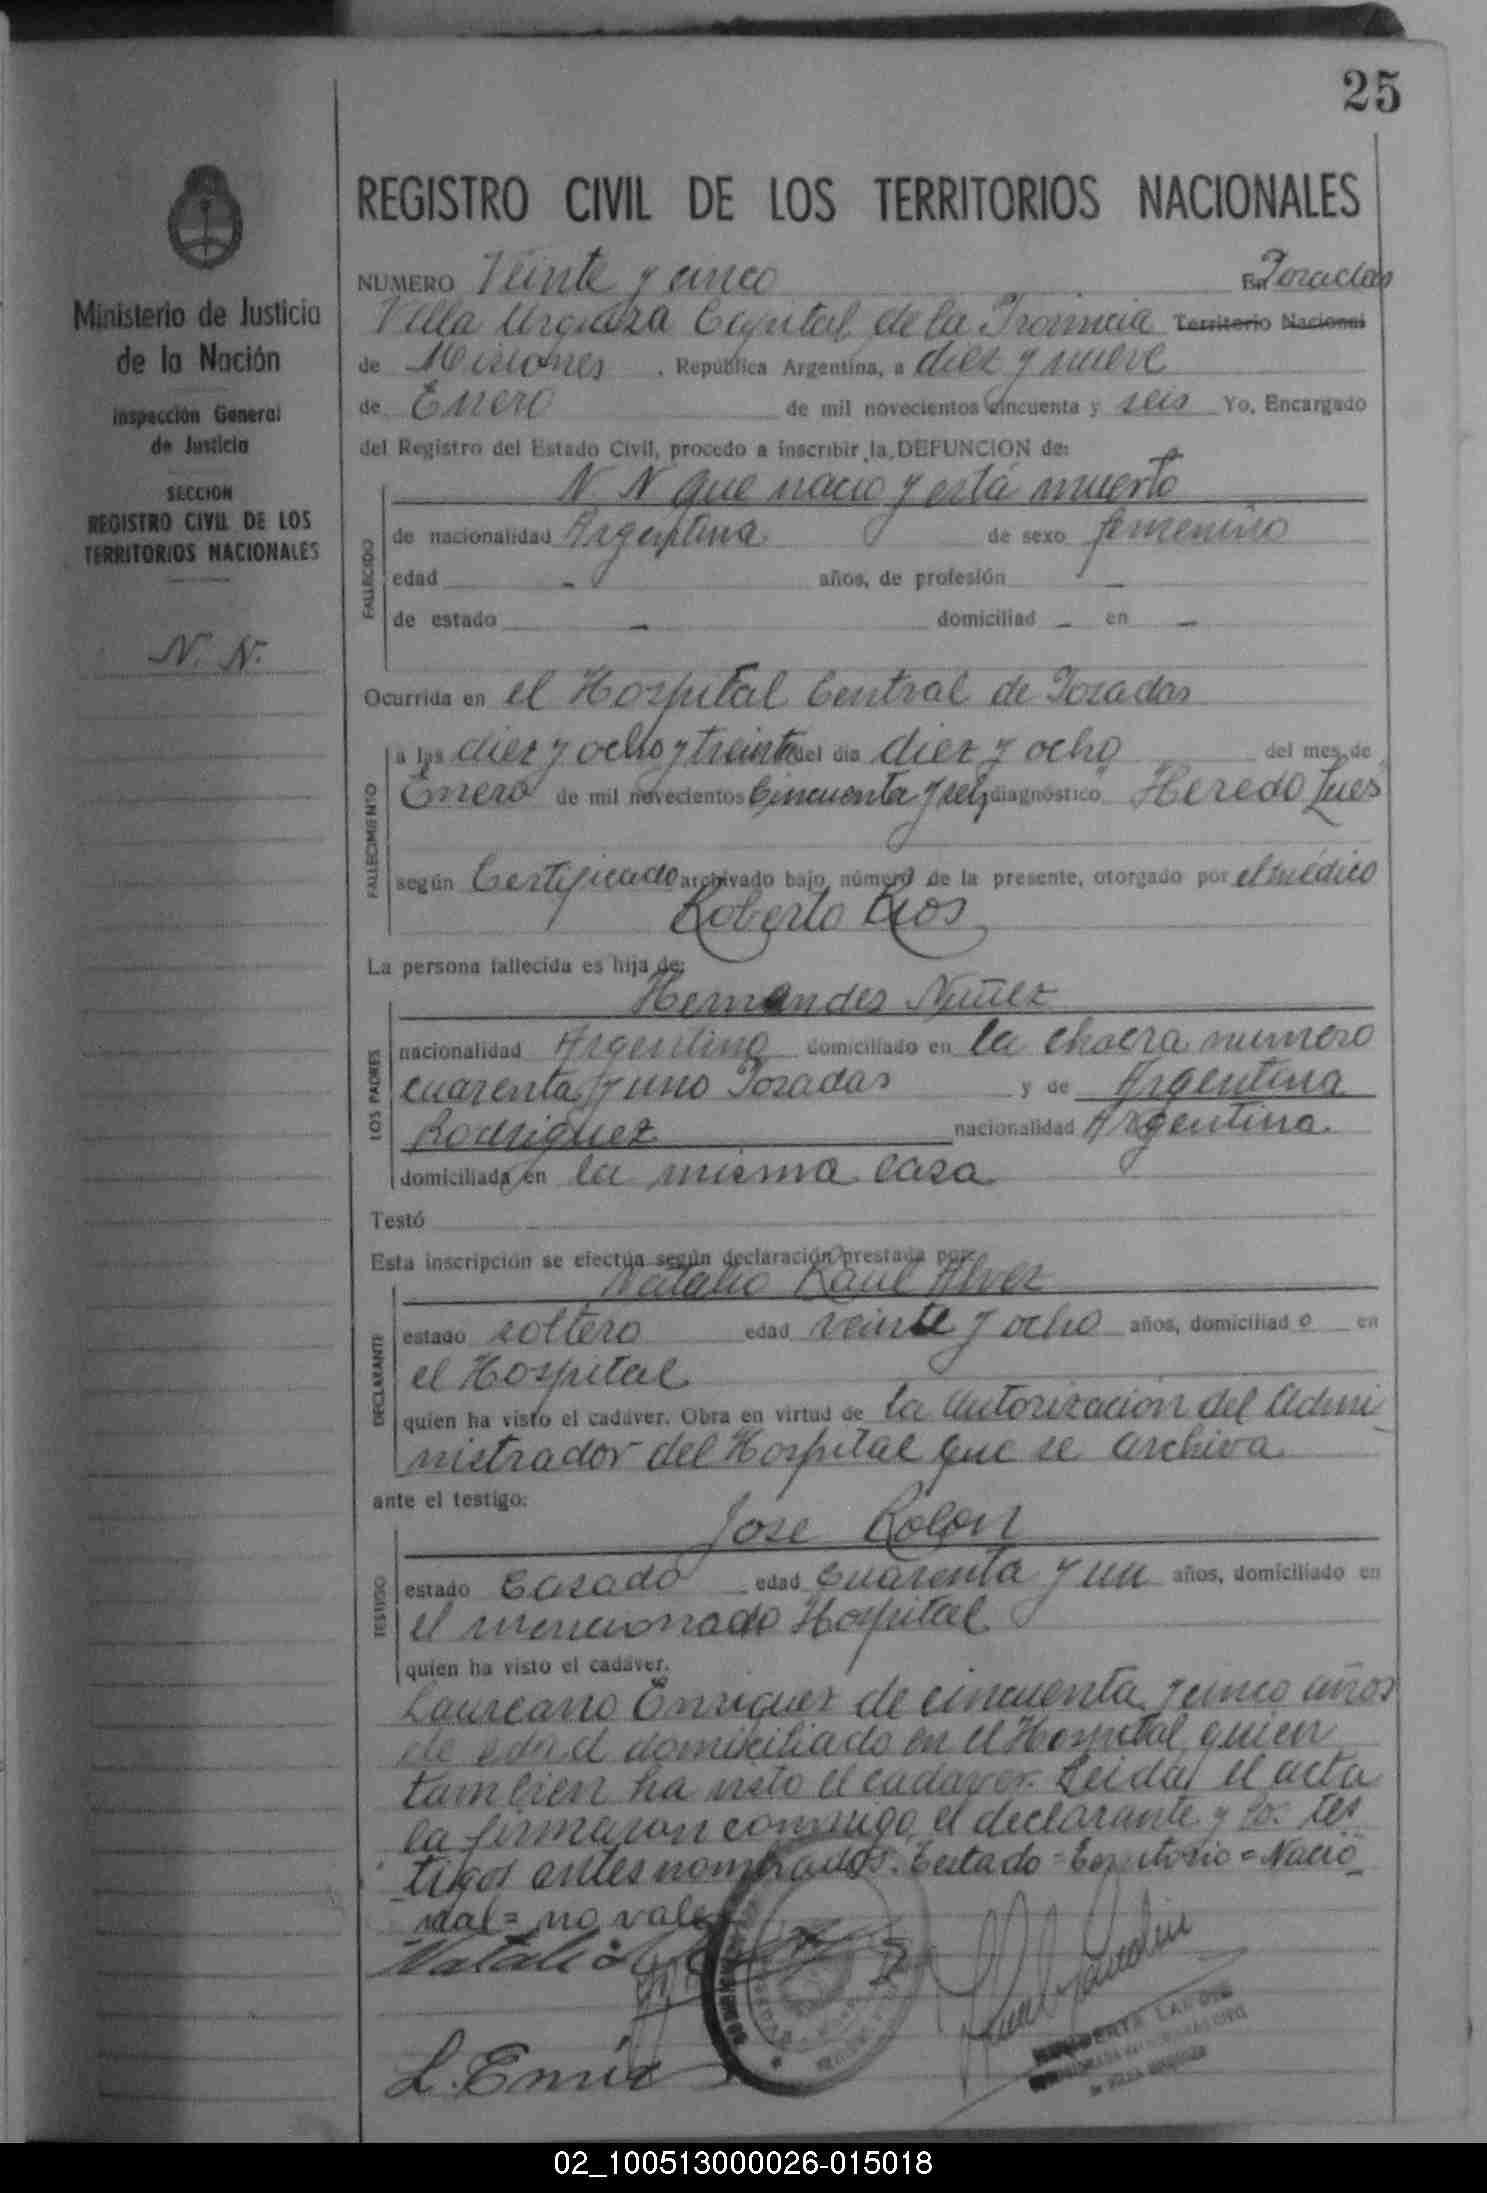 25
REGISTRO CIVIL DE LOS TERRITORIOS NACIONALES
Ministerio de Justicia
de la Nación
Inspección General
de Justicia
SECCION
REGISTRO CIVIL DE LOS
TERRITORIOS NACIONALES
N. N.
NUMERO Veinte y cinco En Posadas
Villa Urquiza Capital de la Provincia Territorio Nacional
de Misiones, República Argentina, a diez y nueve
de Enero de mil novecientos cincuenta y seis Yo, Encargado
del Registro del Estado Civil, procedo a inscribir la DEFUNCION de:
N. N que nacio y está muerto
FALLECIDO
de nacionalidad Argentina de sexo femenino
edad - años, de profesión -
de estado - domiciliad - en -
Ocurrida en el Hospital Central de Posadas
FALLECIMIENTO
a las diez y ocho y treinta del día diez y ocho del mes de
Enero de mil novecientos Cincuenta y seis, diagnóstico "Heredo Lues"
según Certificado archivado bajo número de la presente, otorgado por el médico
Roberto Rios
La persona fallecida es hija de:
Hernandes Nuñez
LOS PADRES
nacionalidad Argentino domiciliado en la chacra numero
cuarenta y uno Posadas y de Argentina
Rodriguez nacionalidad Argentina
domiciliada en la misma casa
Testó
Esta inscripción se efectúa según declaración prestada por:
Natalio Raul Alvez
DECLARANTE
estado soltero edad veinte y ocho años, domiciliad o en
el Hospital
quien ha visto el cadáver. Obra en virtud de la autorizacion del Admi
nistrador del Hospital que se archiva
ante el testigo:
Jose Rolon
TESTIGO
estado Casado edad Cuarenta y un años, domiciliado en
el mencionado Hospital
quien ha visto el cadáver.
Laureano Enriquez de cincuenta y cinco años
de edad domiciliado en el Hospital quien
tambien ha visto el cadaver. Leida el acta
la firmaron conmigo el declarante y los tes
tigos antes nombrados. Testado = Territorio = Nacio
nal = no vale
Natalio
L. Enriz
02_100513000026-015018